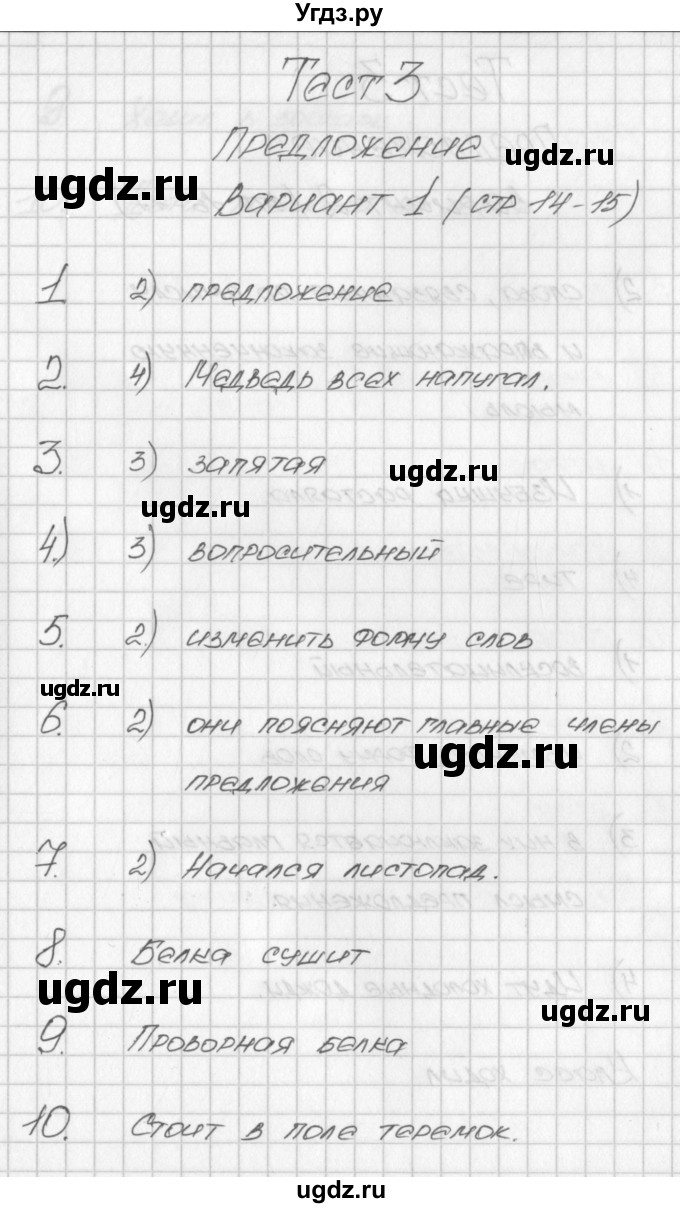 Угдз.ру
Тест 3
Предложение
ugdz.ru
ugdz.ru
Вариант 1 (стр 14-15)
1 2) предложение
2. 4) Медведь всех напугал.
3. 3) запятая
ugdz.ru
ugdz.ru
4.) 3) вопросительный
5. 2.) изменить форму слов
ugdz.ru
6. 2) они поясняют главные члены
ugdz.ru
предложения
7. 2) Начался листопад.
8. Белка сушит
ugdz.ru
ugdz.ru
9. Проворная белка
10. Стоит в поле теремок.
ugdz.ru